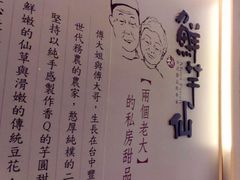 鮮芋仙
【兩個老大】
的私房甜品
傅大姐與傅大哥，生長在台中豐
世代務農的農家，憨厚純樸的二
堅持以純手感製作香Q的芋圓甜
鮮嫩的仙草與滑嫩的傳統豆花